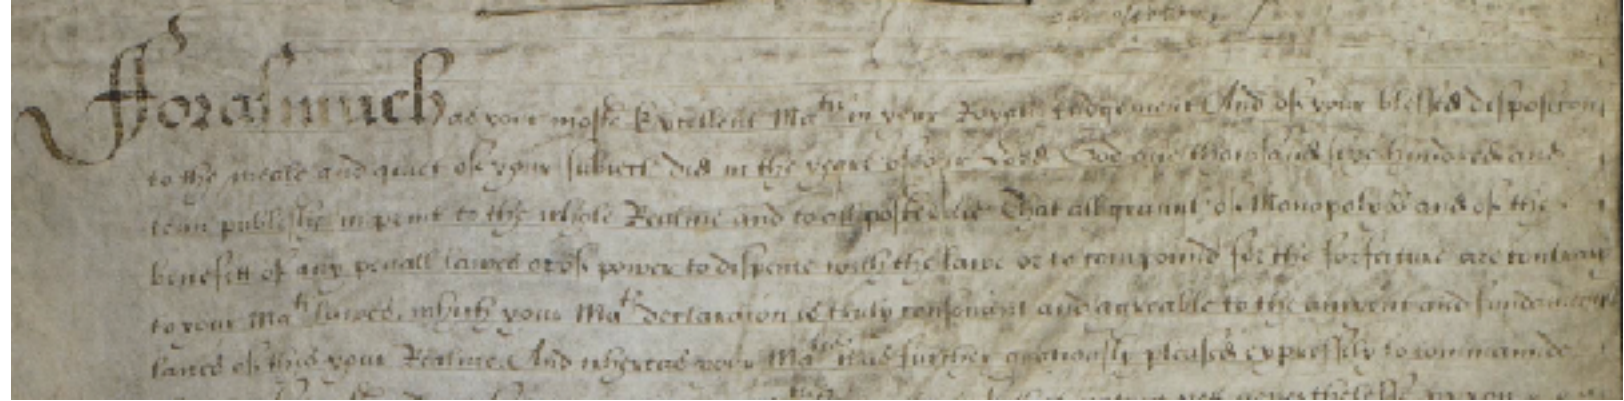 Fforasmuch as your moste Excellent Ma^tie in your Royall Judgement And of your blessed disposicon
to the weale and quiet of your subiect did in the yeare of our Lord God one thousand sixe hundred and
tenn publishe in print to the whole Realme and to all posteritie That all graunt of Monopolyes and of the
benefitt of any penall lawes or of power to dispence with the lawe or to compound for the forfeiture are contrary
to your Ma^ts lawes, which your Ma^ts declaracion is truly consonant and agreable to the auncient and fundamentall
lawes of this your Realme And whereas your Ma^tie was further graciously pleased expressely to commaunde
neverthelesse uppon